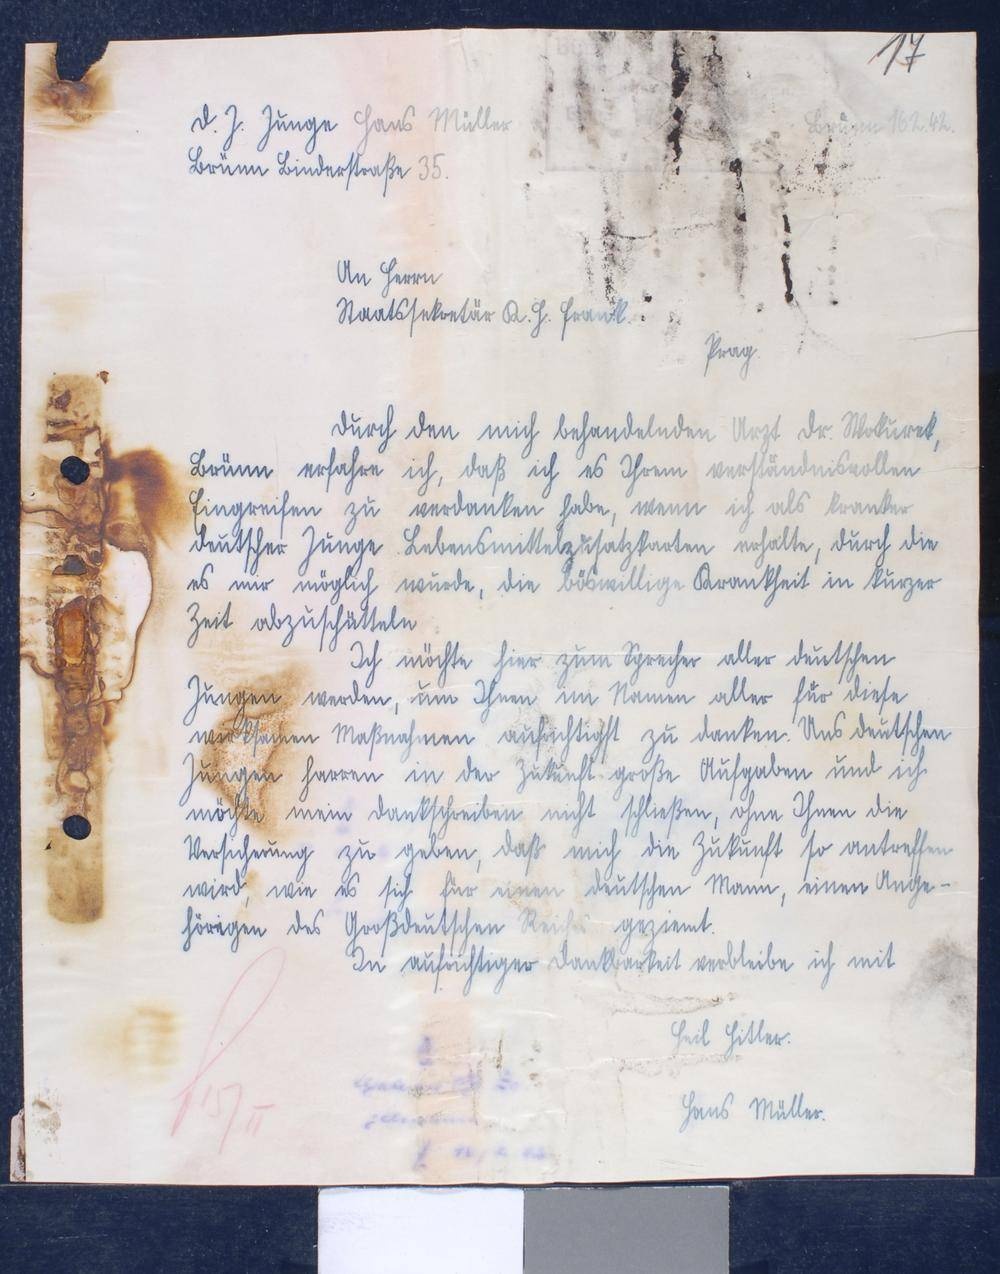 17
D. J. Junge Hans Müller
Brünn 16.2.42.
Brünn Binderstraße 35.
An Herrn
Staatssekretär K. H. Frank.
Prag.
Durch den mich behandelnden Arzt Dr. Wokurek,
Brünn erfahre ich, daß ich es Ihrem verständnisvollen
Eingreifen zu verdanken habe, wenn ich als kranker
deutscher Junge Lebensmittelzusatzkarten erhalte, durch die
es mir möglich wurde, die böswillige Krankheit in kurzer
Zeit abzuschütteln
Ich möchte hier zum Sprecher aller deutschen
Jungen werden, um Ihnen im Namen aller für diese
wirksamen Maßnahmen aufrichtigst zu danken. Uns deutschen
Jungen harren in der Zukunft große Aufgaben und ich
möchte mein Dankschreiben nicht schließen, ohne Ihnen die
Versicherung zu geben, daß mich die Zukunft so antreffen
wird, wie es sich für einen deutschen Mann, einen Ange-
hörigen des Großdeutschen Reichs geziemt.
In aufrichtiger Dankbarkeit verbleibe ich mit
Heil Hitler.
Hans Müller.